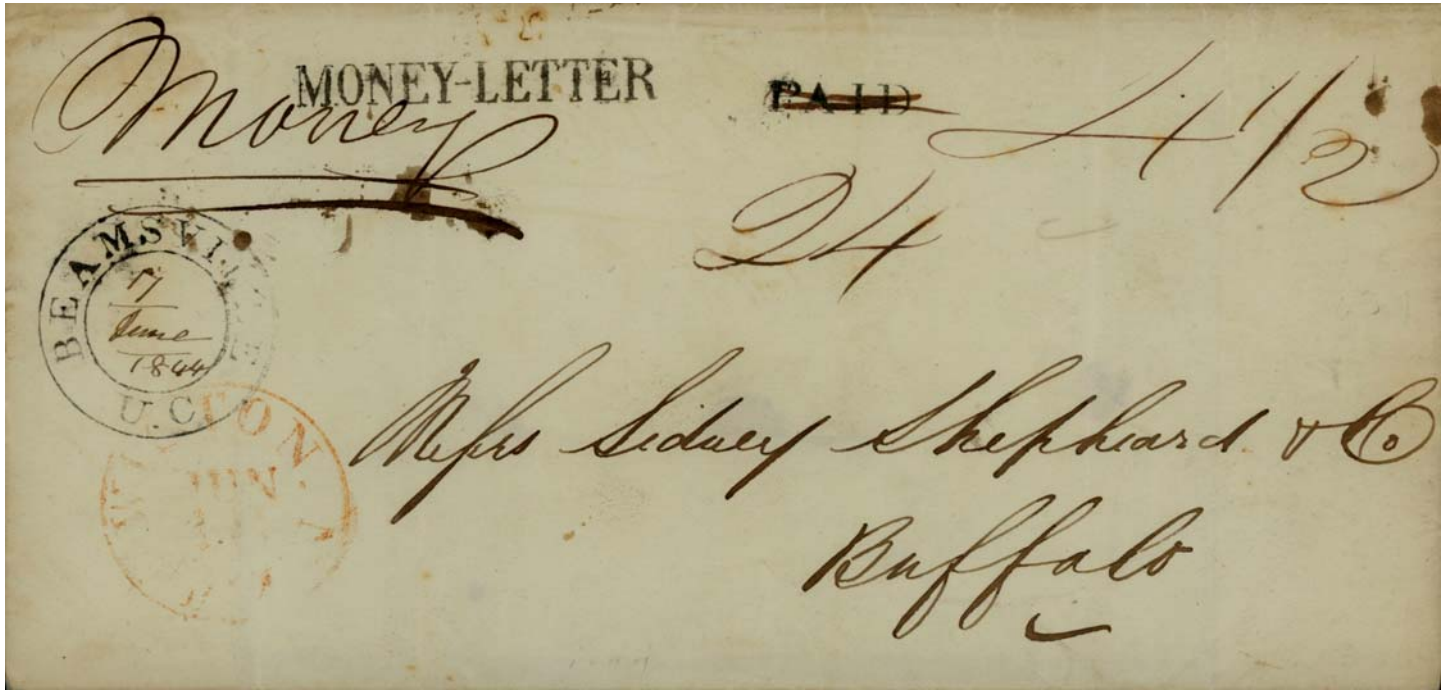 Money
MONEY-LETTER
PAID
4 1/2
24
BEAMSVILLE
17
June
1844
U.C.
JUN
Messrs Sidney Shepheard & Co
Buffalo